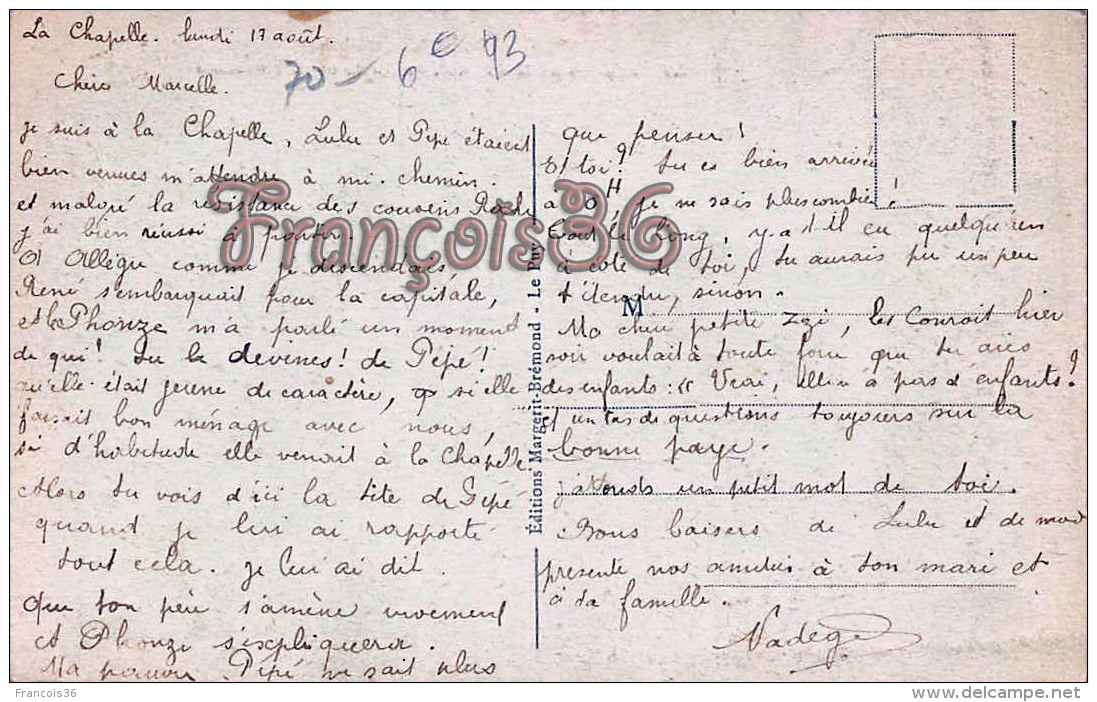 La Chapelle. lundi 17 août.
70 - 6 € 93
Chère Marcelle.
je suis à la Chapelle, Lulu et Pépé étaient
bien venues m'attendre à mi. chemin.
et malgré la résistance des cousins
j'ai bien réussi à partir.
A Allègre comme je descendais,
René s'embarquait pour la capitale,
et la Phonze m'a parlé un moment
de qui! tu le devines! de Pépé!
qu'elle était jeune de caractère, si elle
faisait bon ménage avec nous,
si d'habitude elle venait à la Chapelle.
Alors tu vois d'ici la tête de Pépé
quand je lui ai rapporté
tout cela. je lui ai dit.
que ton père s'amène vivement
et Phonze s'expliquera.
Ma pauvre Pépé ne sait plus
que penser!
Et toi? tu es bien arrivée
a H je ne sais plus combien!
tout le long, y a t-il eu quelqu'un
à côté de toi, tu aurais pu un peu
t'étendre, sinon.
Ma chère petite, les hier
soir voulait à toute force que tu aies
des enfants: « Vrai, elle n'a pas d'enfants?
et un tas de questions toujours sur la
bonne page.
j'attends un petit mot de toi.
Bons baisers de Lulu et de moi
présente nos amitiés à ton mari et
à ta famille.
Nadège
M
Éditions Margerit-Brémond - Le Puy
François36
Francois36
www.delcampe.net